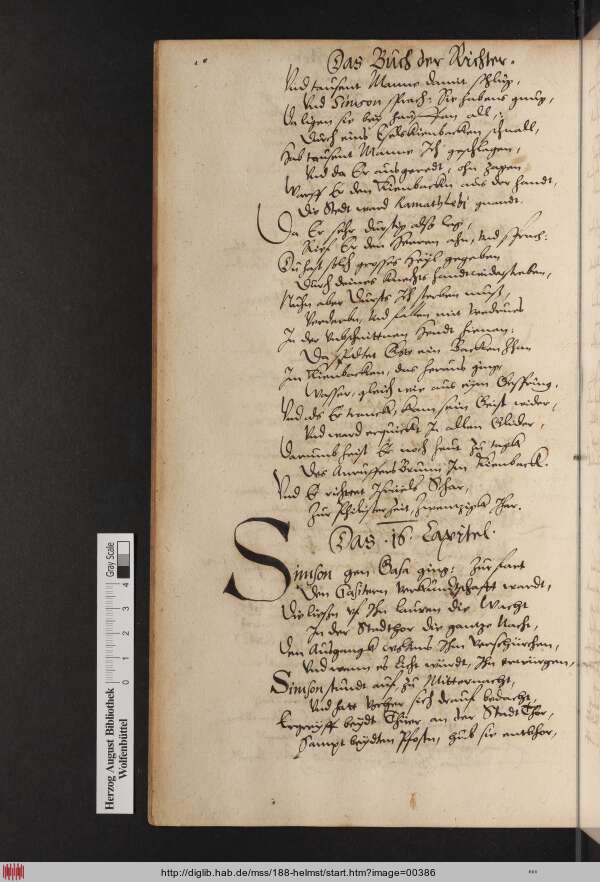 Das Buch der Richter.
Vnd tausent Manne damit schlug,
Vnd Simson sprach: Sie habens gnug,
Da ligen sie bey hauffen all,
Durch eins Eselskienbacken schnall,
Hab tausent Manne Ich geschlagen,
Vnd da Er ausgeredt, ohn zagen
Warff Er den Kienbackn aus der handt,
Die Stedt ward Ramathlehi gnandt.
Da Er sehr durstig also lag,
Rief Er den Herren ahn, vnd sprach:
Du hast solch grosses Heyl gegeben
Durch deines Knechts handt
Nuhn aber Dursts Ich sterben must,
Verderbn, vnd fallen mit
In der Vnbschnittnen Hendt hienan:
Da spaltet Gott ein Backen Zhan
Im Kienbacken, das heraus ging,
Wasser, gleich wie aus eym Gespring,
Vnd als Er tranck, kam sein Geist wider,
Vnd ward erquickt In allen Glider,
Darumb heist Er noch heut zu tagk
Des Anruffers Brunn Im Kienback.
Vnd Er richtet Israels Schar,
Zur Philister Zeit, zwentzigk Jhar.
Das .16. Capitel.
Simson gen Gasa ging: Zur fart
Den Gasitern Verkundtschafft wardt,
Die liessn vf Ihn lauren die Wacht
In der Stadthor die gantze Nacht,
Den Ausgangk Ihm
Vnd wann es Licht wurdt, Ihn erwürgen,
Simson stundt auf zu Mitternacht,
Vnd hatt sich drauf bedacht,
Ergreyff beydt Thüer an der Stadt Thor,
Sampt beydten Pfosten, hub sie enthor,
Herzog August Bibliothek
Wolfenbüttel
Gray Scale
0 1 2 3 4
http://diglib.hab.de/mss/188-helmst/start.htm?image=00386